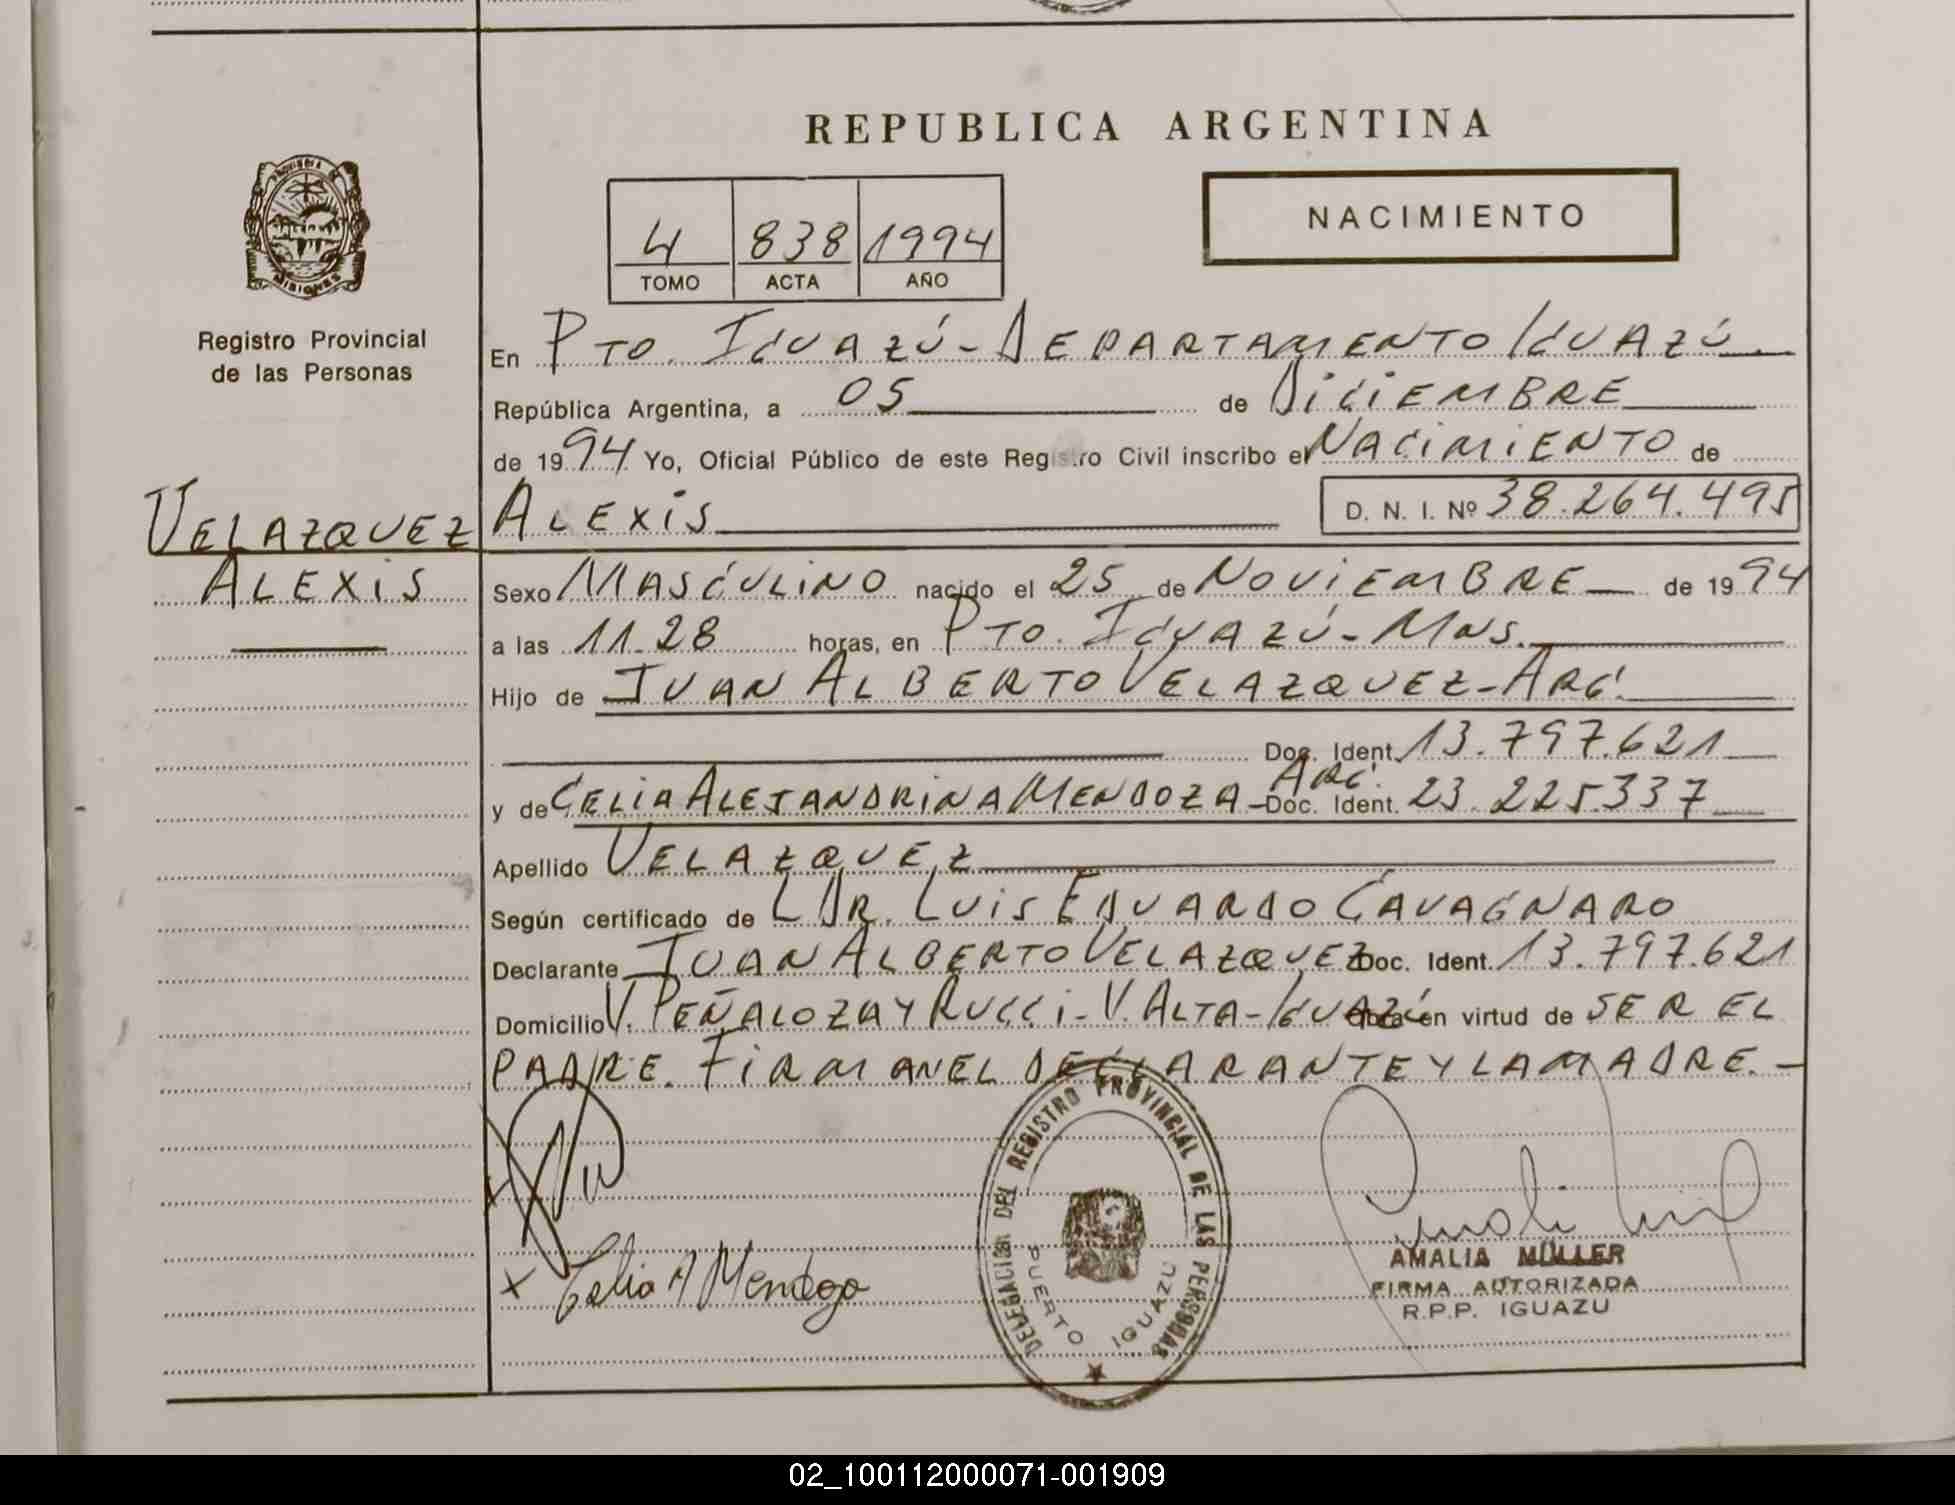 REPUBLICA ARGENTINA
NACIMIENTO
4 838 1994
TOMO ACTA AÑO
PROVINCIA DE MISIONES
Registro Provincial
de las Personas
VELAZQUEZ
ALEXIS
En PTO. IGUAZÚ - DEPARTAMENTO IGUAZÚ
República Argentina, a 05 de DICIEMBRE
de 1994 Yo, Oficial Público de este Registro Civil inscribo el NACIMIENTO de
ALEXIS D. N. I. Nº 38.264.495
Sexo MASCULINO nacido el 25 de NOVIEMBRE de 1994
a las 11.28 horas, en PTO. IGUAZÚ - MNS.
Hijo de JUAN ALBERTO VELAZQUEZ - ARG.
Doc. Ident. 13.797.621
y de CELIA ALEJANDRINA MENDOZA - ARG. Doc. Ident. 23.225.337
Apellido VELAZQUEZ
Según certificado de L DR. LUIS EDUARDO CAVAGNARO
Declarante JUAN ALBERTO VELAZQUEZ Doc. Ident. 13.797.621
Domicilio V. PEÑALOZA Y RUCCI - V. ALTA - IGUAZÚ Obra en virtud de SER EL
PADRE. FIRMAN EL DECLARANTE Y LA MADRE. -
x Celia A Mendoza
DELEGACION DEL REGISTRO PROVINCIAL DE LAS PERSONAS
PUERTO IGUAZU
AMALIA MÜLLER
FIRMA AUTORIZADA
R.P.P. IGUAZU
02_100112000071-001909